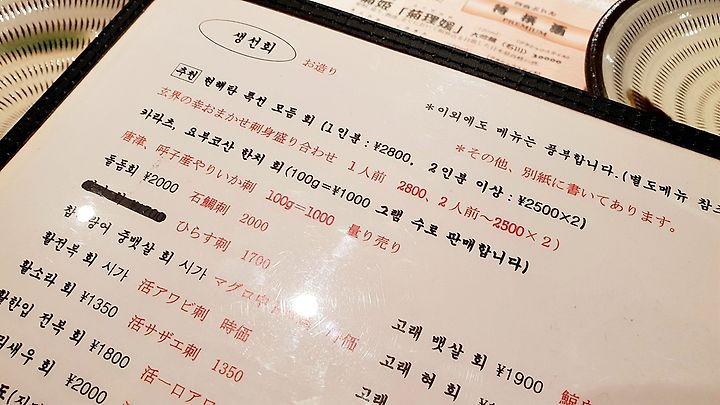 생선회
お造り
추천 현해탄 특선 모듬 회 (1인분 : ¥2800, 2인분 이상 : ¥2500×2)
玄界の幸おまかせ刺身盛り合わせ 1人前 2800、2人前～2500×2)
카라츠, 요부코산 한치 회 (100g=¥1000 그램 수로 판매합니다)
唐津、呼子産やりいか刺 100g=1000 量り売り
돌돔회 ¥2000
石鯛刺 2000
ひらす刺 1700
참 랑어 중뱃살 회 시가
マグロ中 時価
활전복 회 시가
活アワビ刺 時価
활소라 회 ¥1350
活サザエ刺 1350
활한입 전복 회 ¥1800
活一口アワ
새우 회 ¥2000
*이외에도 메뉴는 풍부합니다.(별도메뉴 참
*その他、別紙に書いてあります。
고래 뱃살 회 ¥1900
고래 혀 회
고래
鯨
PREMIUM
「菊理媛」 大吟醸 (石川) 10000